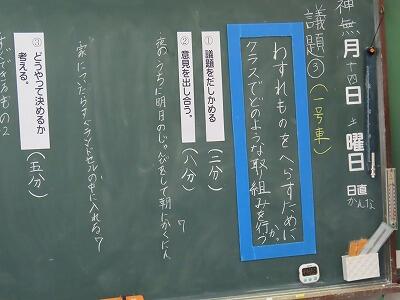 神無月十四日 土曜日 日直 かんな
議題③(一号車)
わすれものをへらすために
クラスでどのような取組みを行うか。
① 議題をたしかめる (二分)
② 意見を出し合う。 (八分)
夜のうちに明日のじゅんびをして朝にかくにん 7
家についたらすぐランドセルの中に入れる 7
③ どうやって決めるか考える。 (五分)